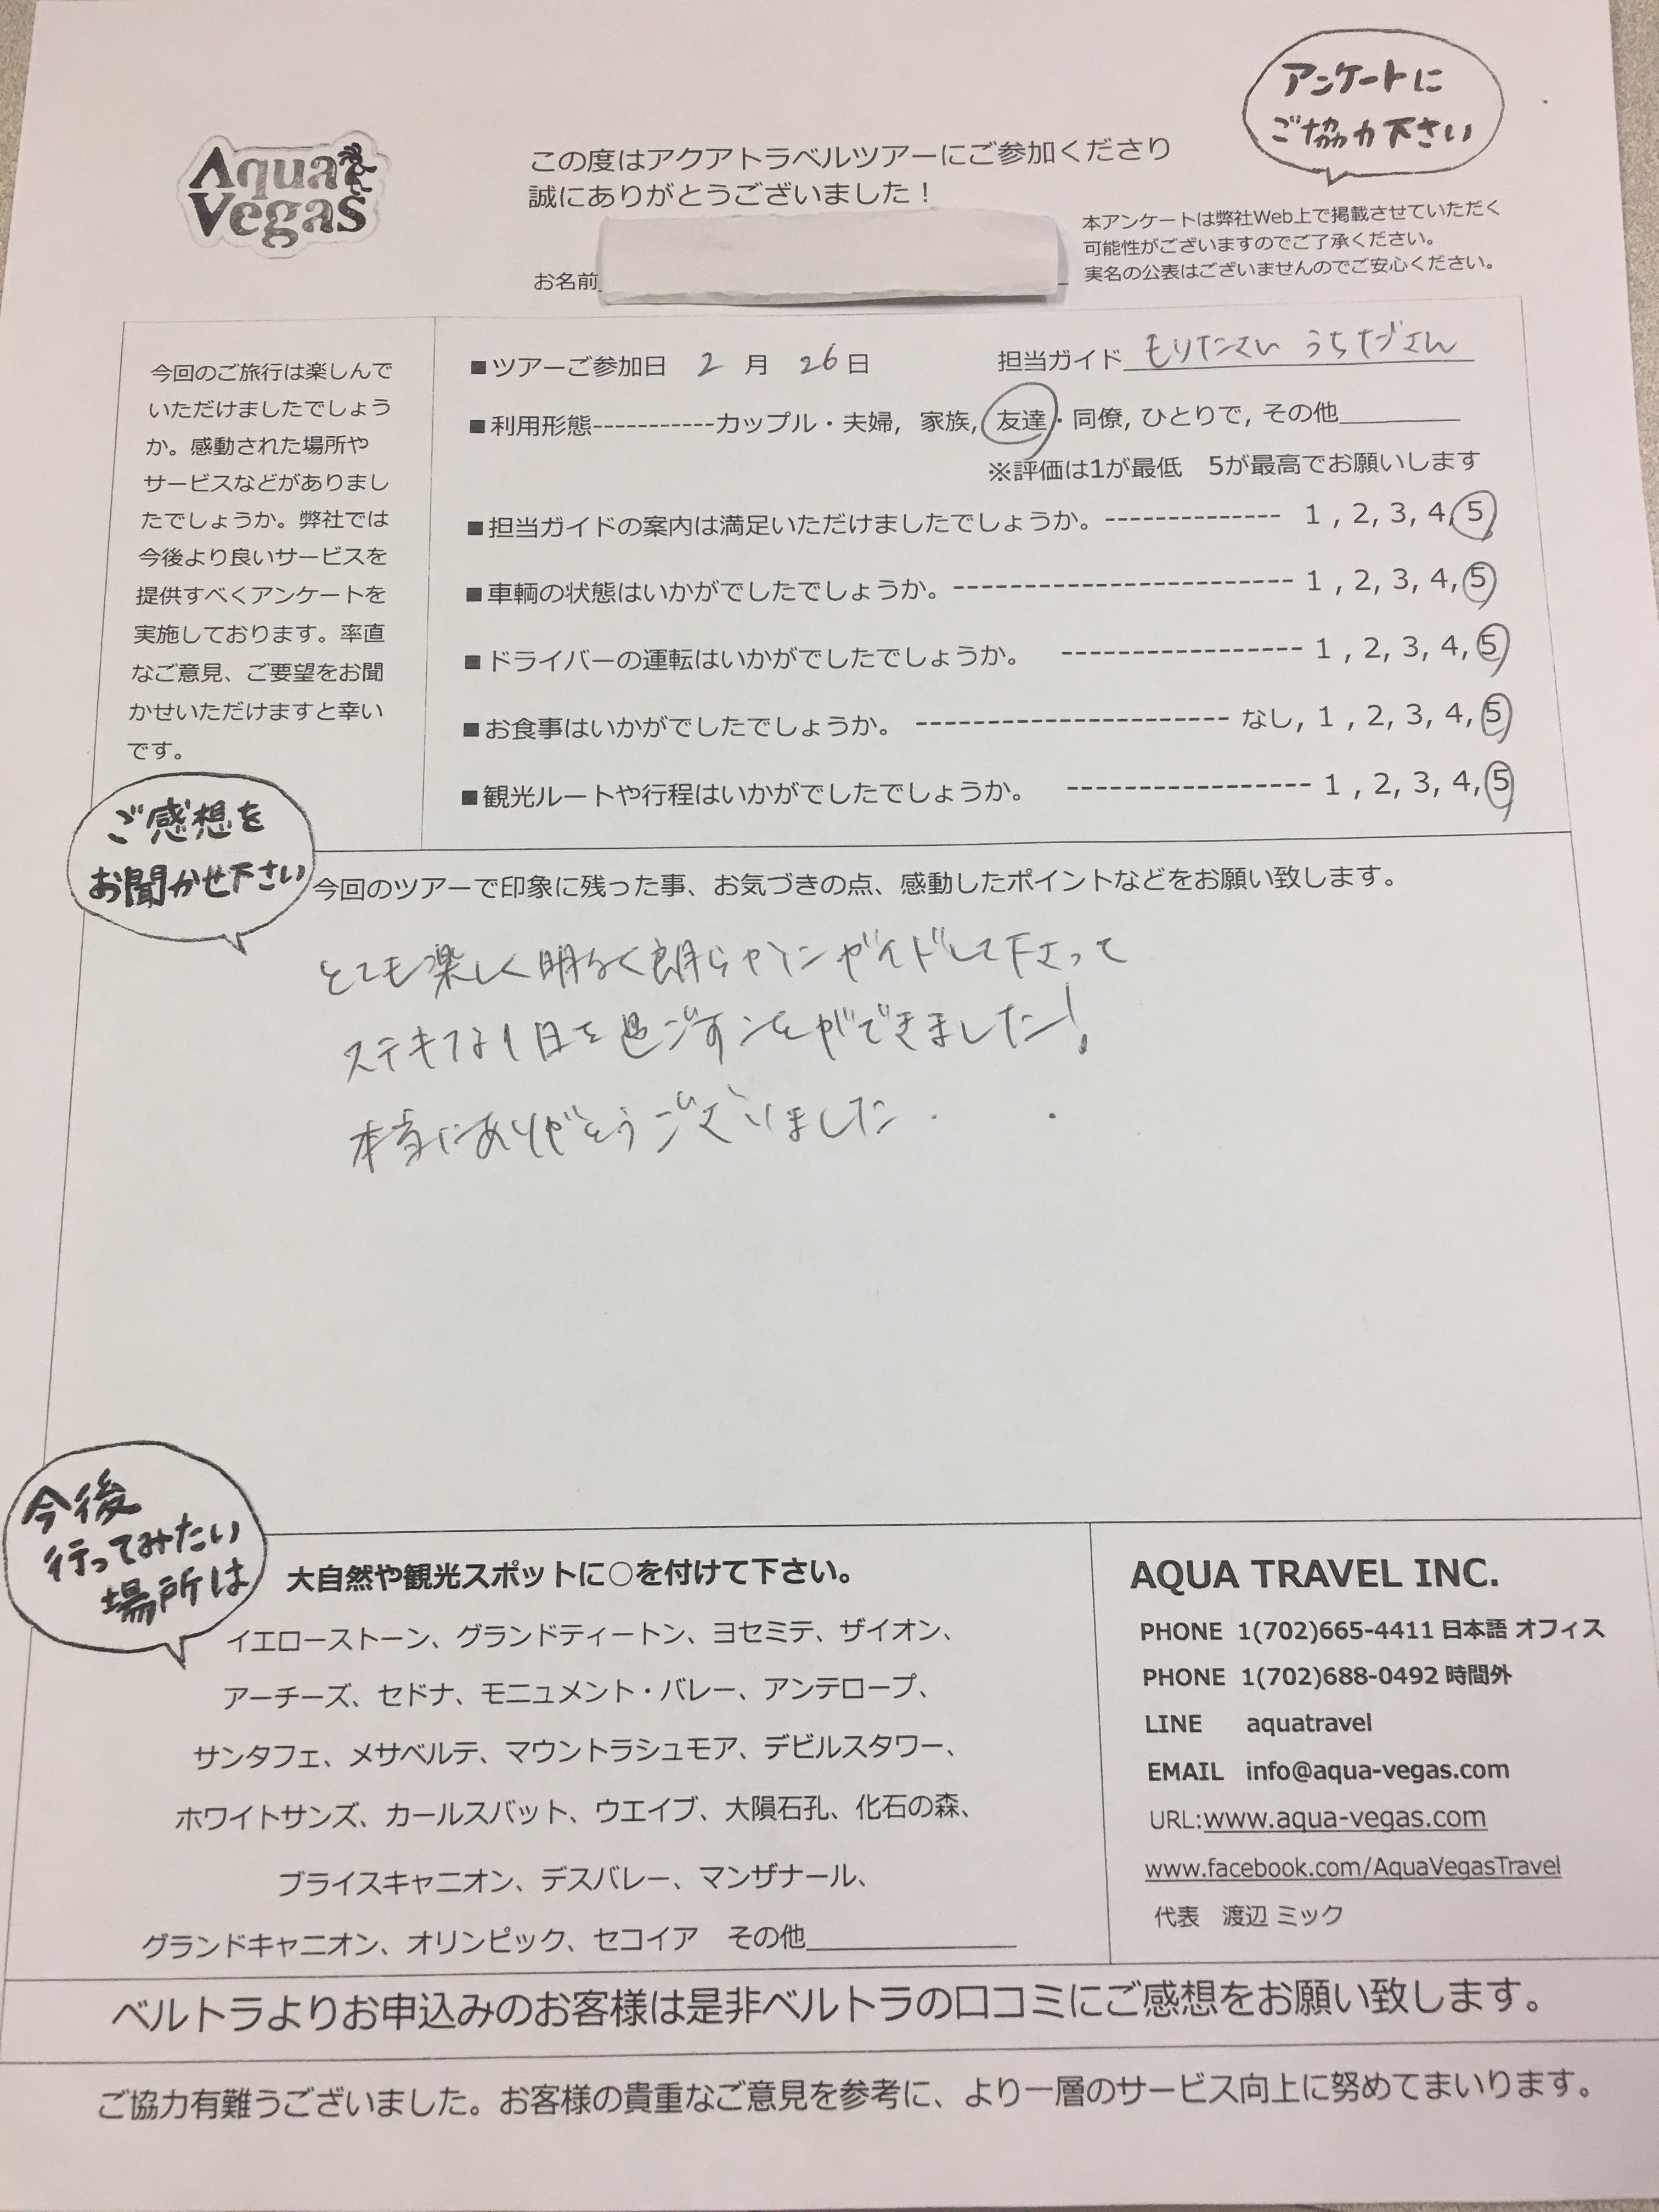 アンケートに
ご協力下さい
Aqua
Vegas
この度はアクアトラベルツアーにご参加くださり
誠にありがとうございました！
お名前
本アンケートは弊社Web上で掲載させていただく
可能性がございますのでご了承ください。
実名の公表はございませんのでご安心ください。
今回のご旅行は楽しんで
いただけましたでしょう
か。感動された場所や
サービスなどがありまし
たでしょうか。弊社では
今後より良いサービスを
提供すべくアンケートを
実施しております。率直
なご意見、ご要望をお聞
かせいただけますと幸い
です。
■ツアーご参加日 2 月 26 日 担当ガイド もりたさん うちださん
■利用形態-----------カップル・夫婦, 家族, 友達・同僚, ひとりで, その他
※評価は1が最低 5が最高でお願いします
■担当ガイドの案内は満足いただけましたでしょうか。-------------- 1 , 2, 3, 4, 5
■車輌の状態はいかがでしたでしょうか。------------------------ 1 , 2, 3, 4, 5
■ドライバーの運転はいかがでしたでしょうか。 ----------------- 1 , 2, 3, 4, 5
■お食事はいかがでしたでしょうか。 ---------------------- なし, 1 , 2, 3, 4, 5
■観光ルートや行程はいかがでしたでしょうか。 ----------------- 1 , 2, 3, 4, 5
ご感想を
お聞かせ下さい
今回のツアーで印象に残った事、お気づきの点、感動したポイントなどをお願い致します。
とても楽しく明るく朗らかにガイドして下さって
ステキな1日を過ごすことができました！
本当にありがとうございました.
今後
行ってみたい
場所は
大自然や観光スポットに○を付けて下さい。
イエローストーン、グランドティートン、ヨセミテ、ザイオン、
アーチーズ、セドナ、モニュメント・バレー、アンテロープ、
サンタフェ、メサベルテ、マウントラシュモア、デビルスタワー、
ホワイトサンズ、カールスバット、ウエイブ、大隕石孔、化石の森、
ブライスキャニオン、デスバレー、マンザナール、
グランドキャニオン、オリンピック、セコイア その他
AQUA TRAVEL INC.
PHONE 1(702)665-4411 日本語 オフィス
PHONE 1(702)688-0492 時間外
LINE aquatravel
EMAIL info@aqua-vegas.com
URL:www.aqua-vegas.com
www.facebook.com/AquaVegasTravel
代表 渡辺 ミック
ベルトラよりお申込みのお客様は是非ベルトラの口コミにご感想をお願い致します。
ご協力有難うございました。お客様の貴重なご意見を参考に、より一層のサービス向上に努めてまいります。